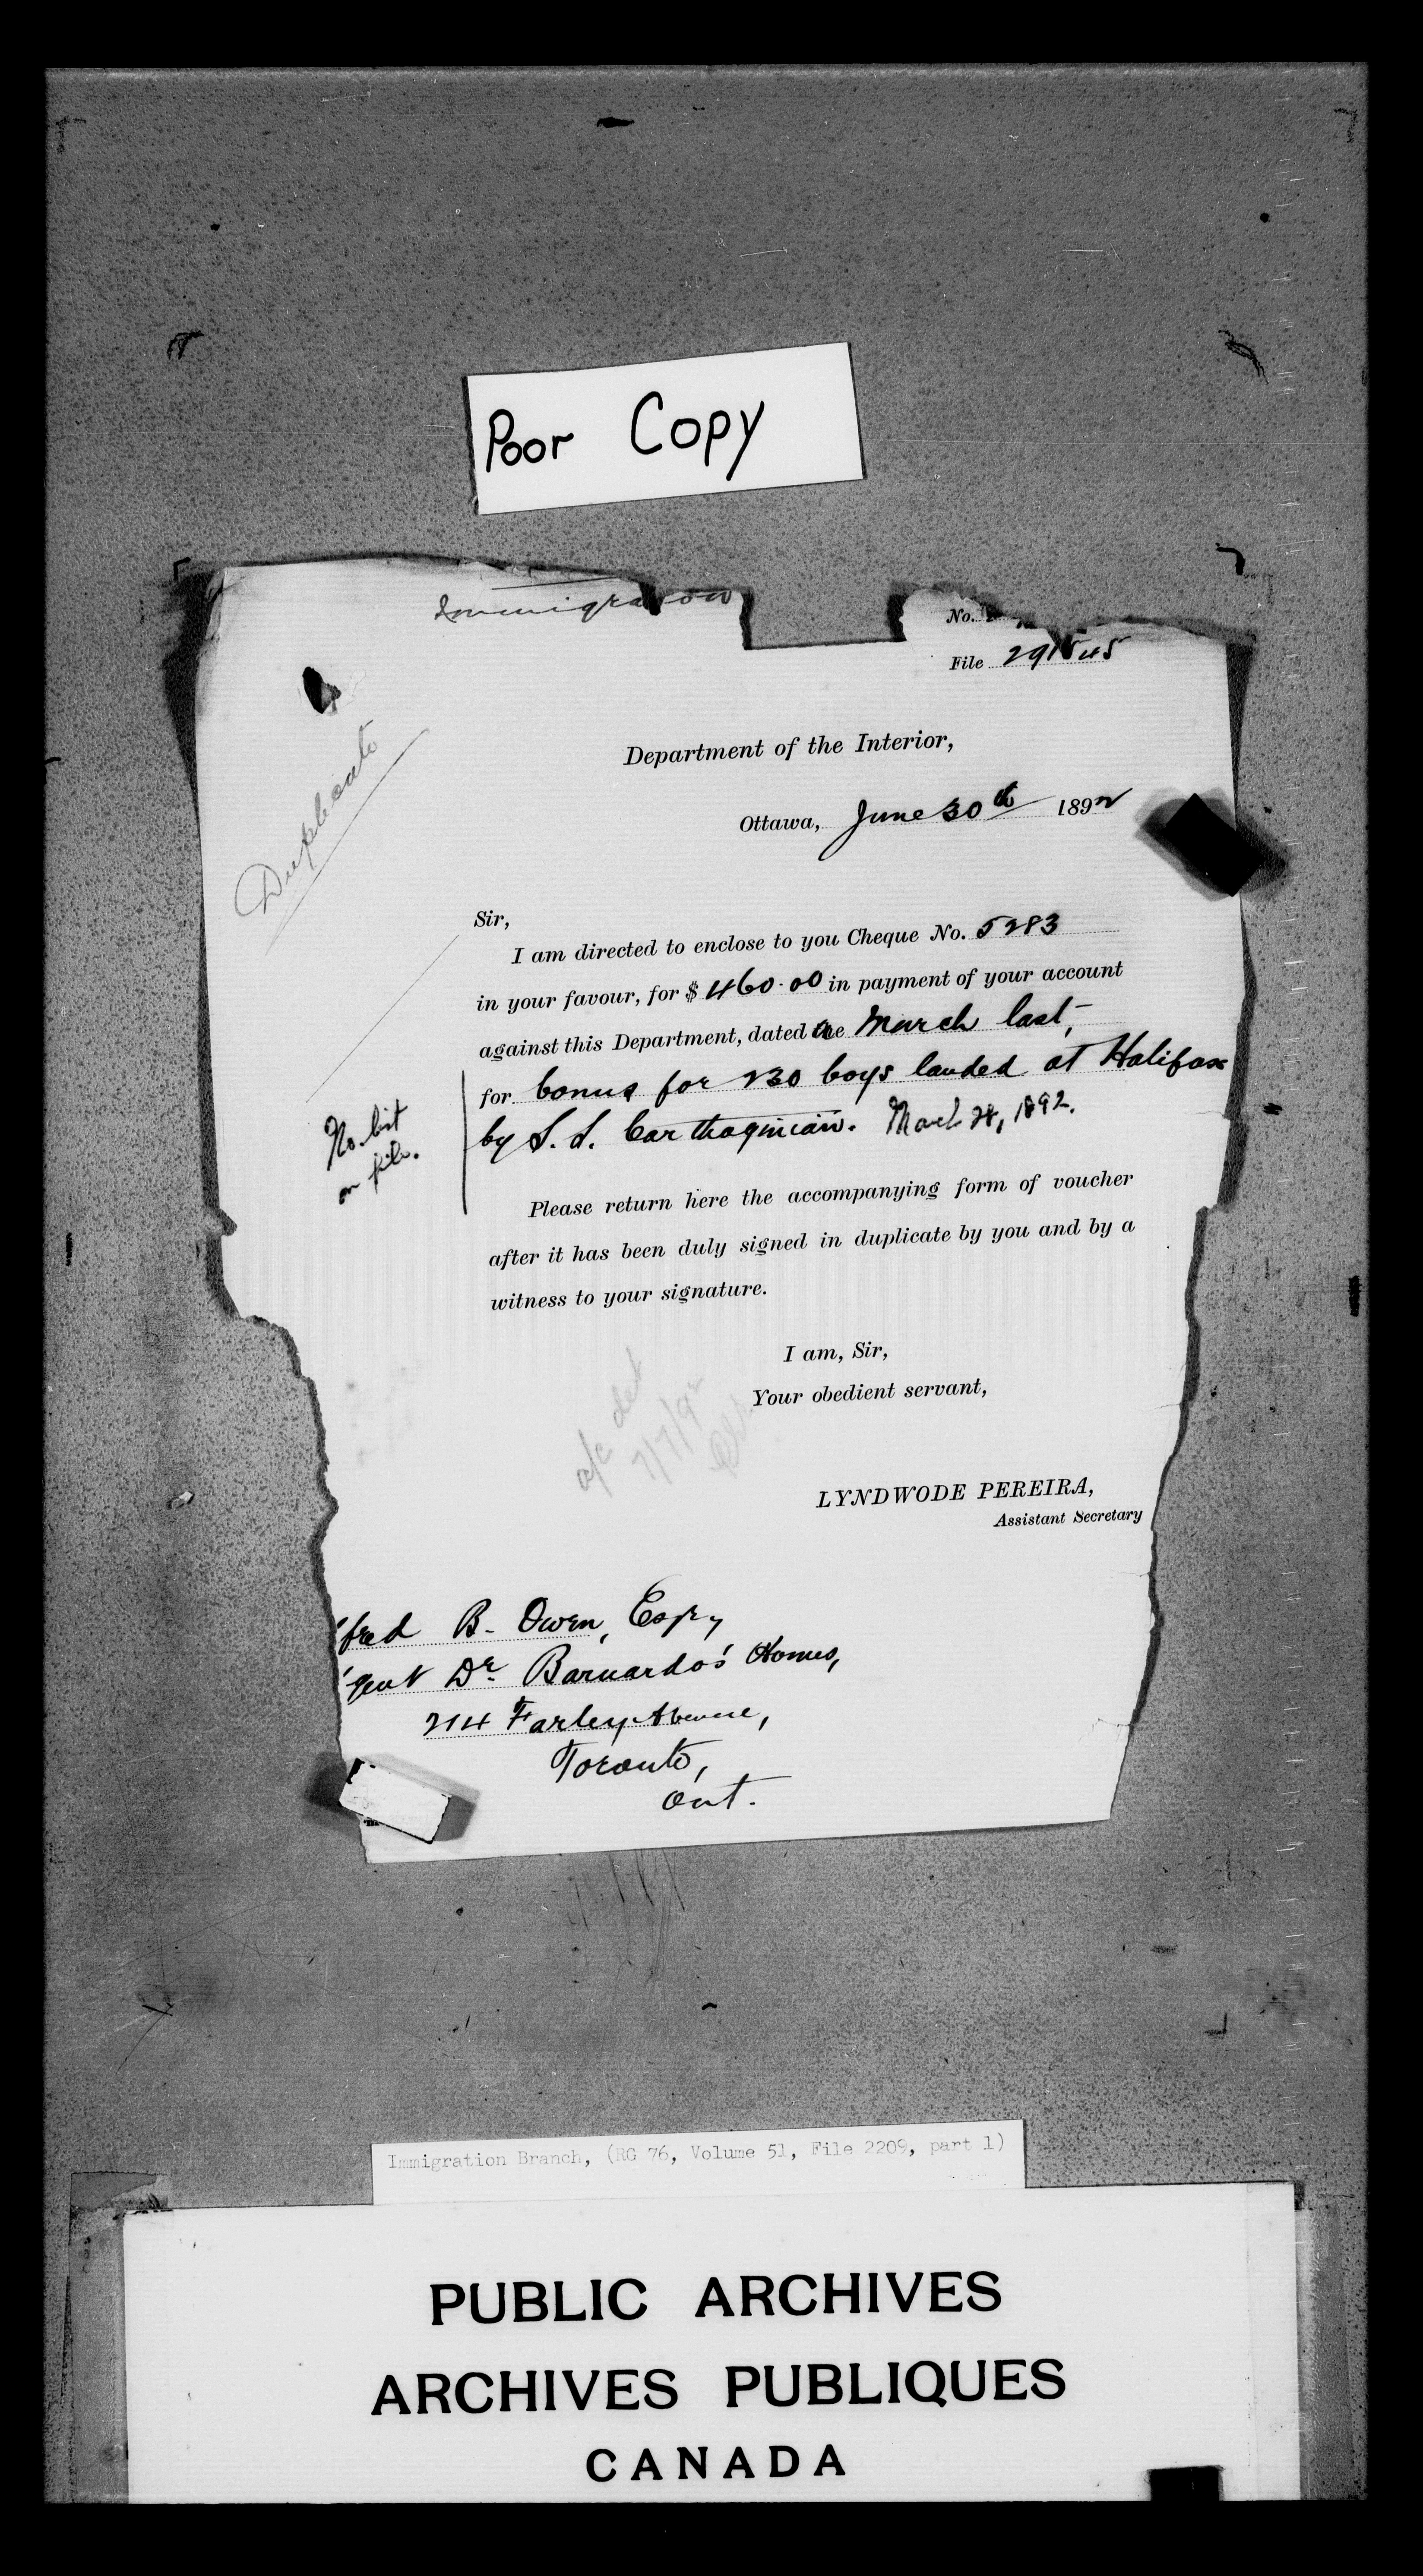 Poor Copy
Immigration
No.
File 291545
Duplicate
Department of the Interior,
Ottawa, June 30th 1892
Sir,
I am directed to enclose to you Cheque No. 5283
in your favour, for $ 460.00 in payment of your account
against this Department, dated March last,
for bonus for 230 boys landed at Halifax
by S.S. Carthaginian. March 28, 1892.
No list
on file.
Please return here the accompanying form of voucher
after it has been duly signed in duplicate by you and by a
witness to your signature.
I am, Sir,
Your obedient servant,
a/c det
7/7/92
LYNDWODE PEREIRA,
Assistant Secretary
fred B. Owen, Esq,
gent Dr Barnardo's Homes,
214 Farley Avenue,
Toronto,
Ont.
Immigration Branch, (RG 76, Volume 51, File 2209, part 1)
PUBLIC ARCHIVES
ARCHIVES PUBLIQUES
CANADA